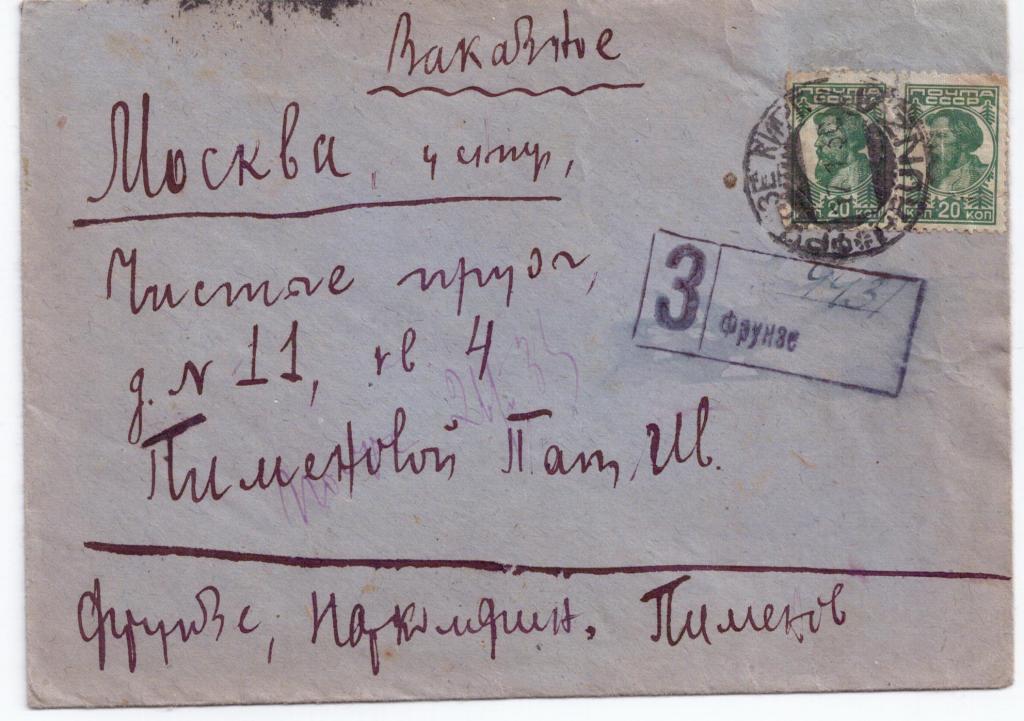 Заказное
Москва, центр,
Чистые пруды,
д. № 11, кв 4
Пименовой Пат. Ив.
Фрунзе, Наркомфин. Пименов
ПОЧТА
СССР
20 КОП
ПОЧТА
СССР
КОП 20 КОП
З
Фрунзе